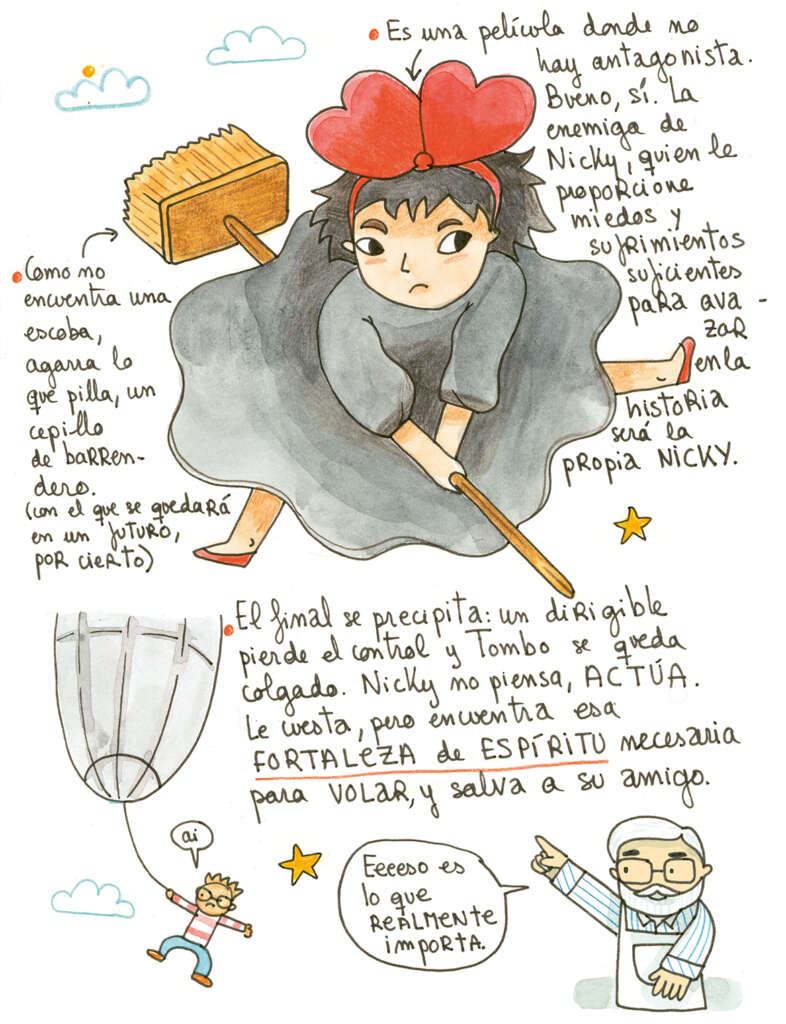 Es una película donde no
hay antagonista.
Bueno, sí. La
enemiga de
Nicky, quien le
proporcione
miedos y
sufrimientos
suficientes
para ava-
zar
en la
historia
será la
propia NICKY.
Como no
encuentra una
escoba,
agarra lo
que pilla, un
cepillo
de barren-
dero.
(con el que se quedará
en un futuro,
por cierto)
El final se precipita: un dirigible
pierde el control y Tombo se queda
colgado. Nicky no piensa, ACTÚA.
Le cuesta, pero encuentra esa
FORTALEZA de ESPÍRITU necesaria
para VOLAR, y salva a su amigo.
ai
Eeeeso es
lo que
REALMENTE
importa.